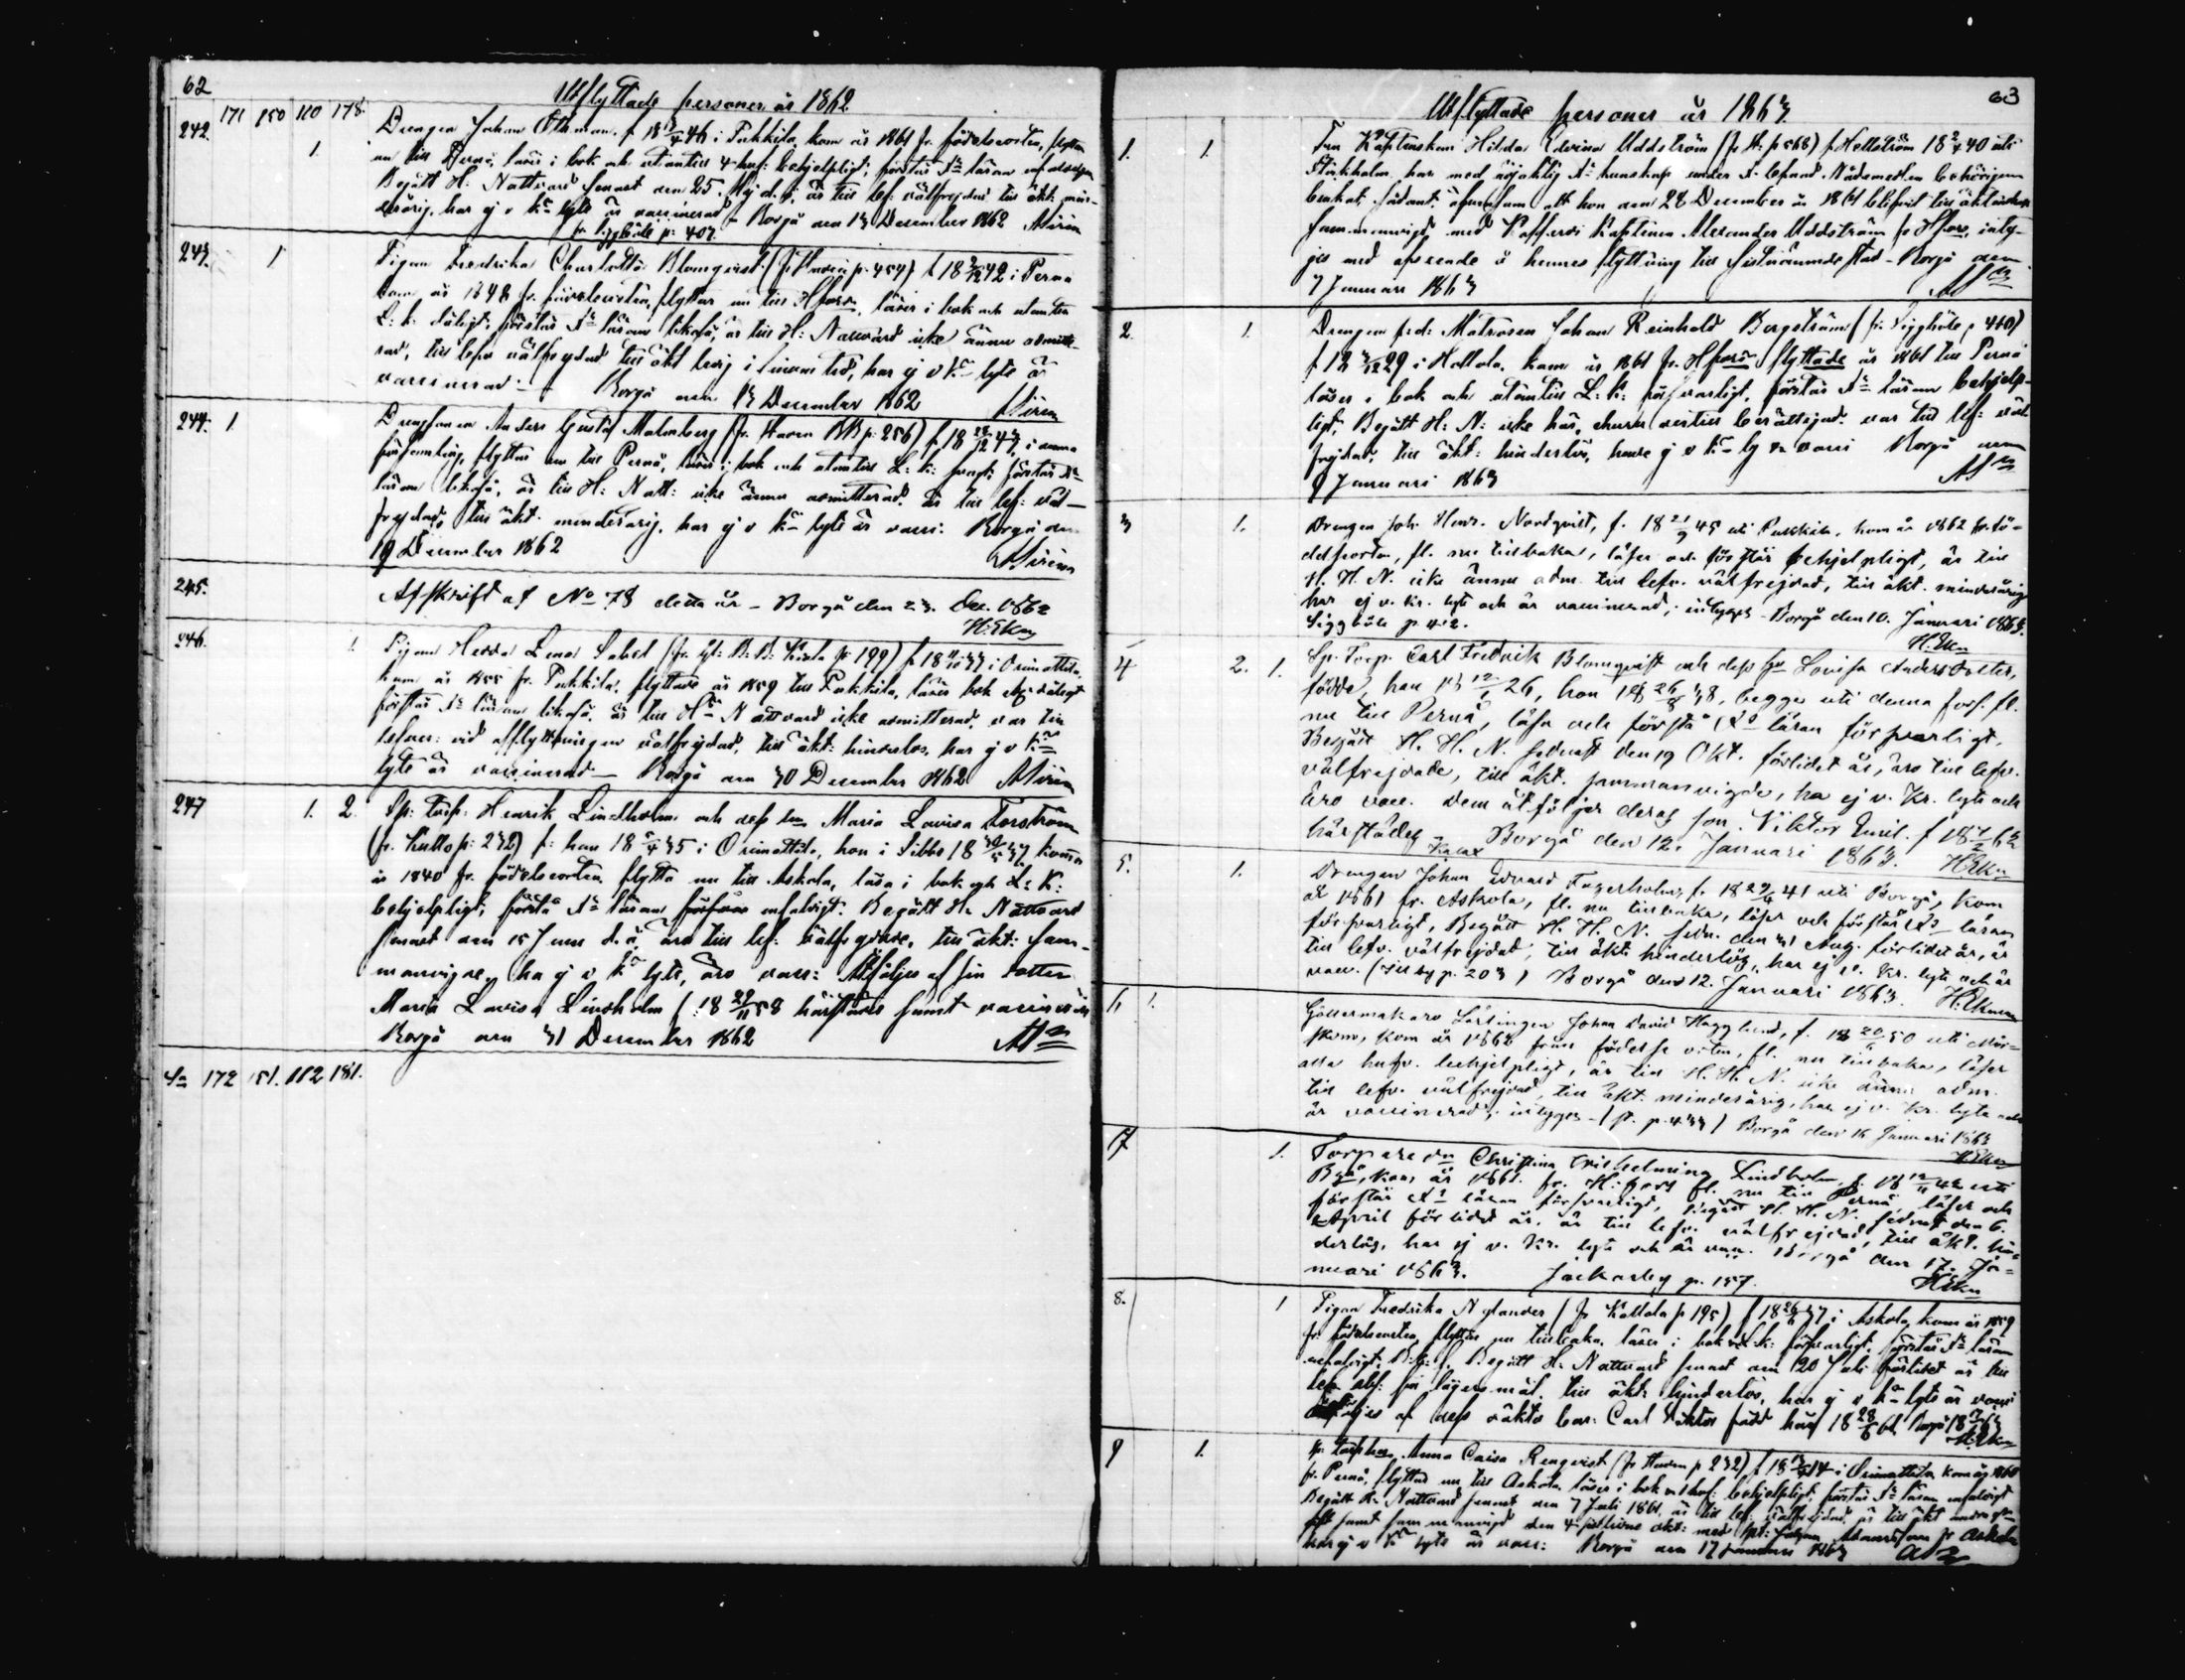 62
Utflyttade personer år 1862
171 150 110 178.
242. 1. Drengen Johan Öthman f 18 4 46 i Pukkila, kom år 1861 fr. födelseorten, flyttar
nu till Pernå, läser i bok och utantill 4 huf: behjelpligt, förstår Xs läran enfaldigt
Begått H: Nattvard senast den 25. Maj d. å, är till lef: välfrejdad till äkt: min-
derårig, har ej v kn lyte är vaccinerad - Borgå den 13 December 1862 Alirén
fr. Siggböle p: 407.
243. 1 Pigan Fredrika Charlotta Blomqvist (fr Haven p. 454) f 18 2/12 42 i Perna
kom år 1848 fr. födelseorten, flyttar nu till Hfors, läser i bok och utantill
L: k: dåligt, förstår Xs läran likaså, är till H: Nattvard icke ännu admitte-
rad, till lefv välfrejdad till äkt ledig i laga tid, har ej v kn lyte är
vaccinerad - Borgå den 13 December 1862 Alirén
244. 1 Drengsonen Anders Gustaf Malmberg (fr. Haven BB p: 256) f 18 28/12 47, i denna
församling, flyttar nu till Pernå, läser i bok och utantill L: k: svagt, förstår Xs
läran likaså, är till H: Natt: icke ännu admitterad. är till lef: väl-
frejdad, till äkt. minderårig, har ej v kn lyte är vacci: Borgå den
19 December 1862 Alirén
245. Afskrift af No 78 detta år - Borgå den 23. Dec. 1862
H: Ekm
246. 1. Pigan Hedda Lena Sabel (fr. B: B: Kiala p 199) f 18 11/10 33 i Orimattila,
kom år 1855 fr. Pukkila, flyttade år 1859 till Pukkila, läser bok dåligt
förstår Xs läran likaså, är till Hs Nattvard icke admitterad, var till
lefver: vid afflyttningen välfrejdad, till äkt: hinderlös, har ej v kn
lyte är vaccinerad - Borgå den 30 December 1862 Alirén
247 1. 2. Sp: torp: Henrik Lindholm och dess hu Maria Lovisa Torström
(fr. Kullo p: 232) f: han 18 5/4 35 i Orimattila, hon i Sibbo 18 30/5 37 komm
år 1840 fr. födelseorten flytta nu till Askola, läsa i bok och L: K:
behjelpligt, förstå Xs läran enfaldigt. Begått H. Nattvard
senast den 15 Juni d. å, äro till lef: välfrejdade, till äkt: sam-
manvigde, ha ej v kn lyte, äro vacc: Åtföljes af sin dotter
Maria Lovisa Lindholm f 18 22/11 58 härstädes samt vaccinerad
Borgå den 31 December 1862 Aln
Sa 172 151. 112 181.
63
Utflyttade personer år 1863
1. 1. Fru Kaptenskan Hilda Edvina Uddström (fr St: p 568) f. Hellström 18 2/4 40 uti
Stockholm har med nöjaktig Xs kunskap under X. lefnad Nådemedlen behörigen
bevakat, hvarjemte åfvensom att hon den 28 December år 1861 blifvit till äktenskap
sammanvigd med Kofferdi Kaptenen Alexander Uddström fr Hfors, inty-
gas med afseende å hennes flyttning till sistnämnde stad - Borgå den
7 Januari 1863 Aln
2. 1. Drengen f.d: Matrosen Johan Reinhold Bergström (fr. Siggböle, p 410)
f 18 3/12 29 i Hollola, kom år 1861 fr. Hfors flyttade år 1861 till Pernå
läser i bok och utantill L: k: försvarligt, förstår Xs läran behjelp-
ligt, Begått H: N: icke här, ehuru dertill berättigad. var till lef: väl
frejdad, till äkt: hinderlös, hade ej v kn ly. & vacci Borgå den
9 Januari 1863 Aln
3 1. Drengen Joh. Henr. Nordqvist, f. 18 21/9 45 uti Pukkila, kom år 1862 fr. fö-
delseorten, fl. nu tillbaka, läser och förstår behjelpligt, är till
H. H. N. icke ännu adm. till lefv. välfrejdad, till äkt. minderårig
har ej v. kr. lyte och är vaccinerad, intygas - Borgå den 10. Januari 1863.
Siggböle p 412. H. Ekm
4 2. 1. Sp. Torp. Carl Fredrik Blomqvist och dess hu Lovisa Andersdotter,
födde, han 18 12/1 26, hon 18 26/8 38, begge uti denna förs. fl.
nu till Pernå, läsa och förstå Xs läran försvarligt,
Begått H. H. N. sednast den 19 Okt. förlidet år, äro till lefv.
välfrejdade, till äkt. sammanvigde, ha ej v. Kr. lyte och
äro vacc. Dem åtföljer deras son. Viktor Emil. f 18 62
härstädes Borgå den 12. Januari 1863. HEkm
5. 1. Drengen Johan Edvard Fagerholm, f. 18 29/4 41 uti Borgå, kom
år 1861 fr. Askola, fl. nu tillbaka, läser och förstår Xs läran
försvarligt, Begått H. H. N. sedn. den 31 Aug. förlidet år, är
till lefv. välfrejdad, till äkt. hinderlös, har ej v. Kr. lyte och är
vacc. (p. 203) Borgå den 12. Januari 1863. H. Ekman
6 1. Lärlingen Johan David Hagglund, f. 18 50 uti Mör-
skom, kom år 1862 från födelse orten, fl. nu tillbaka, läser
alla hufv. behjelpligt, är till H. H. N. icke ännu adm.
till lefv. välfrejdad, till äkt. minderårig, har ej v. Kr. lyte och
är vaccinerad, intygas - (St. p. 433) Borgå den 16 Januari 1863
HEkm
7 1. Torpare du Christina Wilhelmina Lindholm, f. 18 12/11 42 uti
Bgå, kom år 1861. fr. H:fors fl. nu till Pernå, läser och
förstår Xs läran försvarligt, begått H. H. N. sednast den 6.
April förlidet år. är till lefv. välfrejdad, till äkt. hin-
derlös, har ej v. Kr. lyte och är vacc. Borgå den 17. Ja-
nuari 1863. Jackarby p. 157. HEkm
8. 1 Pigan Fredrika Nylander (fr Kallola p 195) f 18 26/6 37 i Askola, kom år 1859
fr. födelseorten, flyttar nu tillbaka, läser i bok och L: k: försvarligt, förstår Xs läran
enfaldigt, Begått H: Nattvard senast den 20 Juli förlidet år till
lef. för lägersmål, till äkt: hinderlös, har ej v kn lyte är vacci
åtföljes af dess oäkta barn: Carl Viktor född här 18 28/6 61, Borgå 18 63
HEkm
9 1. Sp. torphu Anna Caisa Renqvist (fr Haven p 232) f 18 14 i Orimattila kom år 1860
fr. Pernå, flyttad nu till Askola läser i bok behjelpligt, förstår Xs läran enfaldigt
Begått H. Nattvard senast den 7 Juli 1861, är till lef: välfrejdad, är till äkt
samt sammanvigd den 4 sistlidne okt: med fr Askola
har ej v kn lyte är vacc: Borgå den 17 Januari 1863